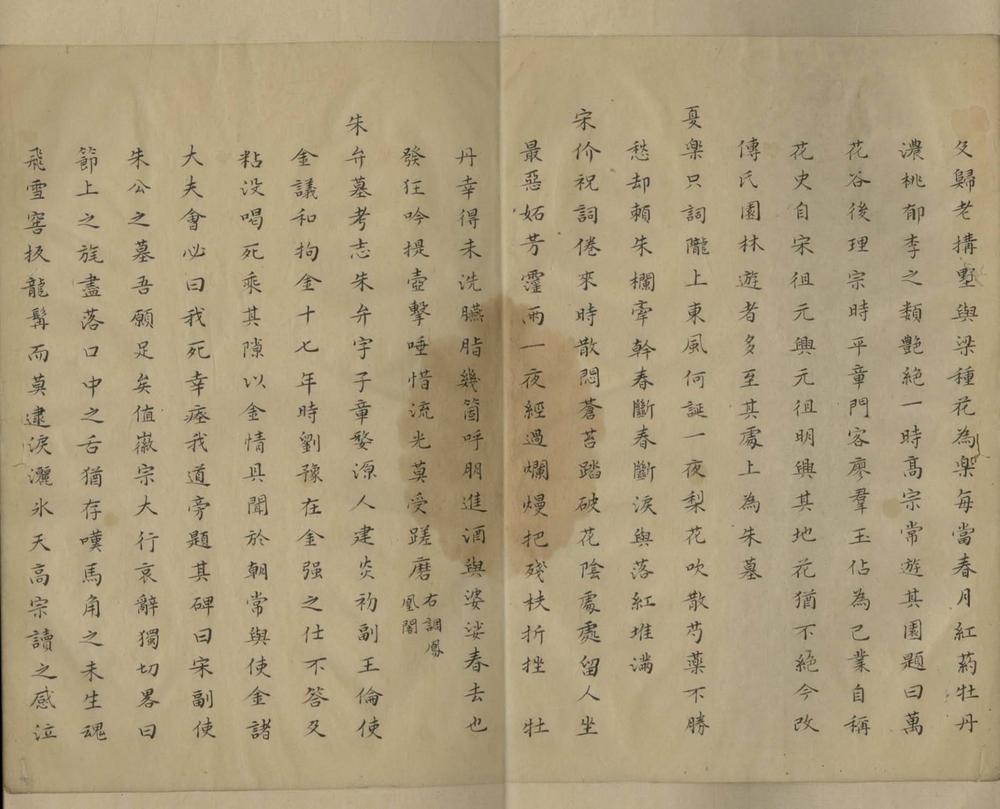 夊歸老搆墅與梁種花為樂每當春月紅葯牡丹
濃桃郁李之類艷絕一時高宗常遊其園題曰萬
花谷後理宗時平章門客廖羣玉佔為己業自稱
花史自宋徂元興元徂明興其地花猶不絕今改
傳氏園林遊者多至其處上為朱墓
戛樂只詞隴上東風何誕一夜梨花吹散芍藥不勝
愁却頼朱欄牽斡春斷春斷淚與落紅堆滿
宋价祝詞倦來時散悶蒼苔踏破花陰處處留人坐
最惡妬芳靈雨一夜經過爛熳把殘枎折挫 牡
丹幸得未洗臙脂幾箇呼朋進酒與婆娑春去也
發狂吟提壺擊唾惜流光莫受蹉磨 右調鳳凰閣
朱弁墓考志朱弁字子章婺源人建炎初副王倫使
金議和拘金十七年時劉豫在金强之仕不答夊
粘没喝死乘其隙以金情具聞於朝常與使金諸
大夫會必曰我死幸瘞我道旁題其碑曰宋副使
朱公之墓吾願足矣值徽宗大行哀辭獨切畧曰
節上之旄盡落口中之舌猶存嘆馬角之未生魂
飛雪窖扳龍髯而莫逮淚灑氷天高宗讀之感泣